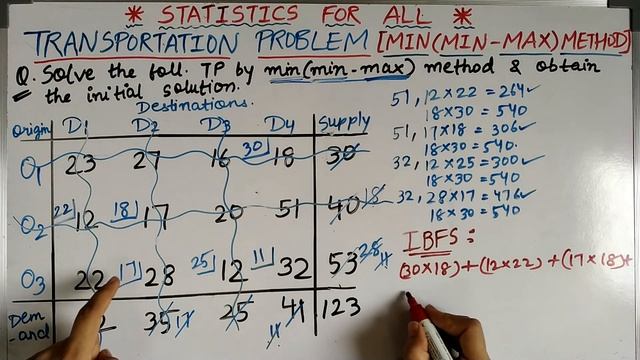 * STATISTICS FOR ALL *
TRANSPORTATION PROBLEM [MIN(MIN-MAX) METHOD]
Q. Solve the foll. TP by min(min-max) method & obtain
the initial solution.
Destinations.
Origin D1 D2 D3 D4 Supply
O1 23 27 16 30 18 30
O2 22 12 18 17 20 51 40 18
O3 22 17 28 25 12 11 32 53 28 11
Demand 35 17 25 41 11 123
51, 12×22 = 264 ✓
18×30 = 540
51, 17×18 = 306 ✓
18×30 = 540.
32, 12×25 = 300 ✓
18×30 = 540
32, 28×17 = 476 ✓
18×30 = 540
IBFS :
(30×18)+(12×22)+(17×18)+